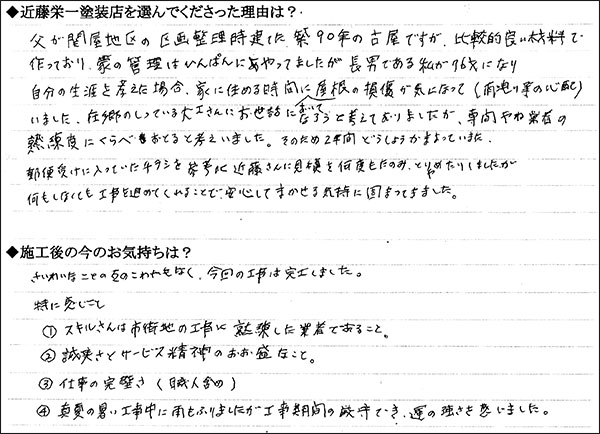 ◆近藤栄一塗装店を選んでくださった理由は?
父が関屋地区の区画整理時建てた築90年の古屋ですが、比較的良い材料で
作っており、家の管理はいんばんに長男である私が76歳になり
自分の生涯を考えた場合、家に住める時間に屋根の損傷が気になって(雨洩り等の心配)
いました。在郷のしっている大工さんにお世話になろうと考えておりましたが、専門や業者の
熟練度にくらべおとると考えいました。そのため2年間どうしようかまよっていた。
郵便受けに入っていたチラシを参考に近藤さんに見積を何度もたのみ、とりやめたりしましたが
何もしなくても工事を進めてくれることで安心してまかせる気持に固まってきました。
◆施工後の今のお気持ちは?
さいわいなことの、今回の工事は完工しました。
特に感じこと
① スキルさんは市街地の工事に熟練した業者であること。
② 誠実さとサービス精神のおお盛なこと。
③ 仕事の完璧さ(職人含め)
④ 真夏の暑い工事中に雨もふりましたが工事期間の厳守でき、運の強さを思いました。